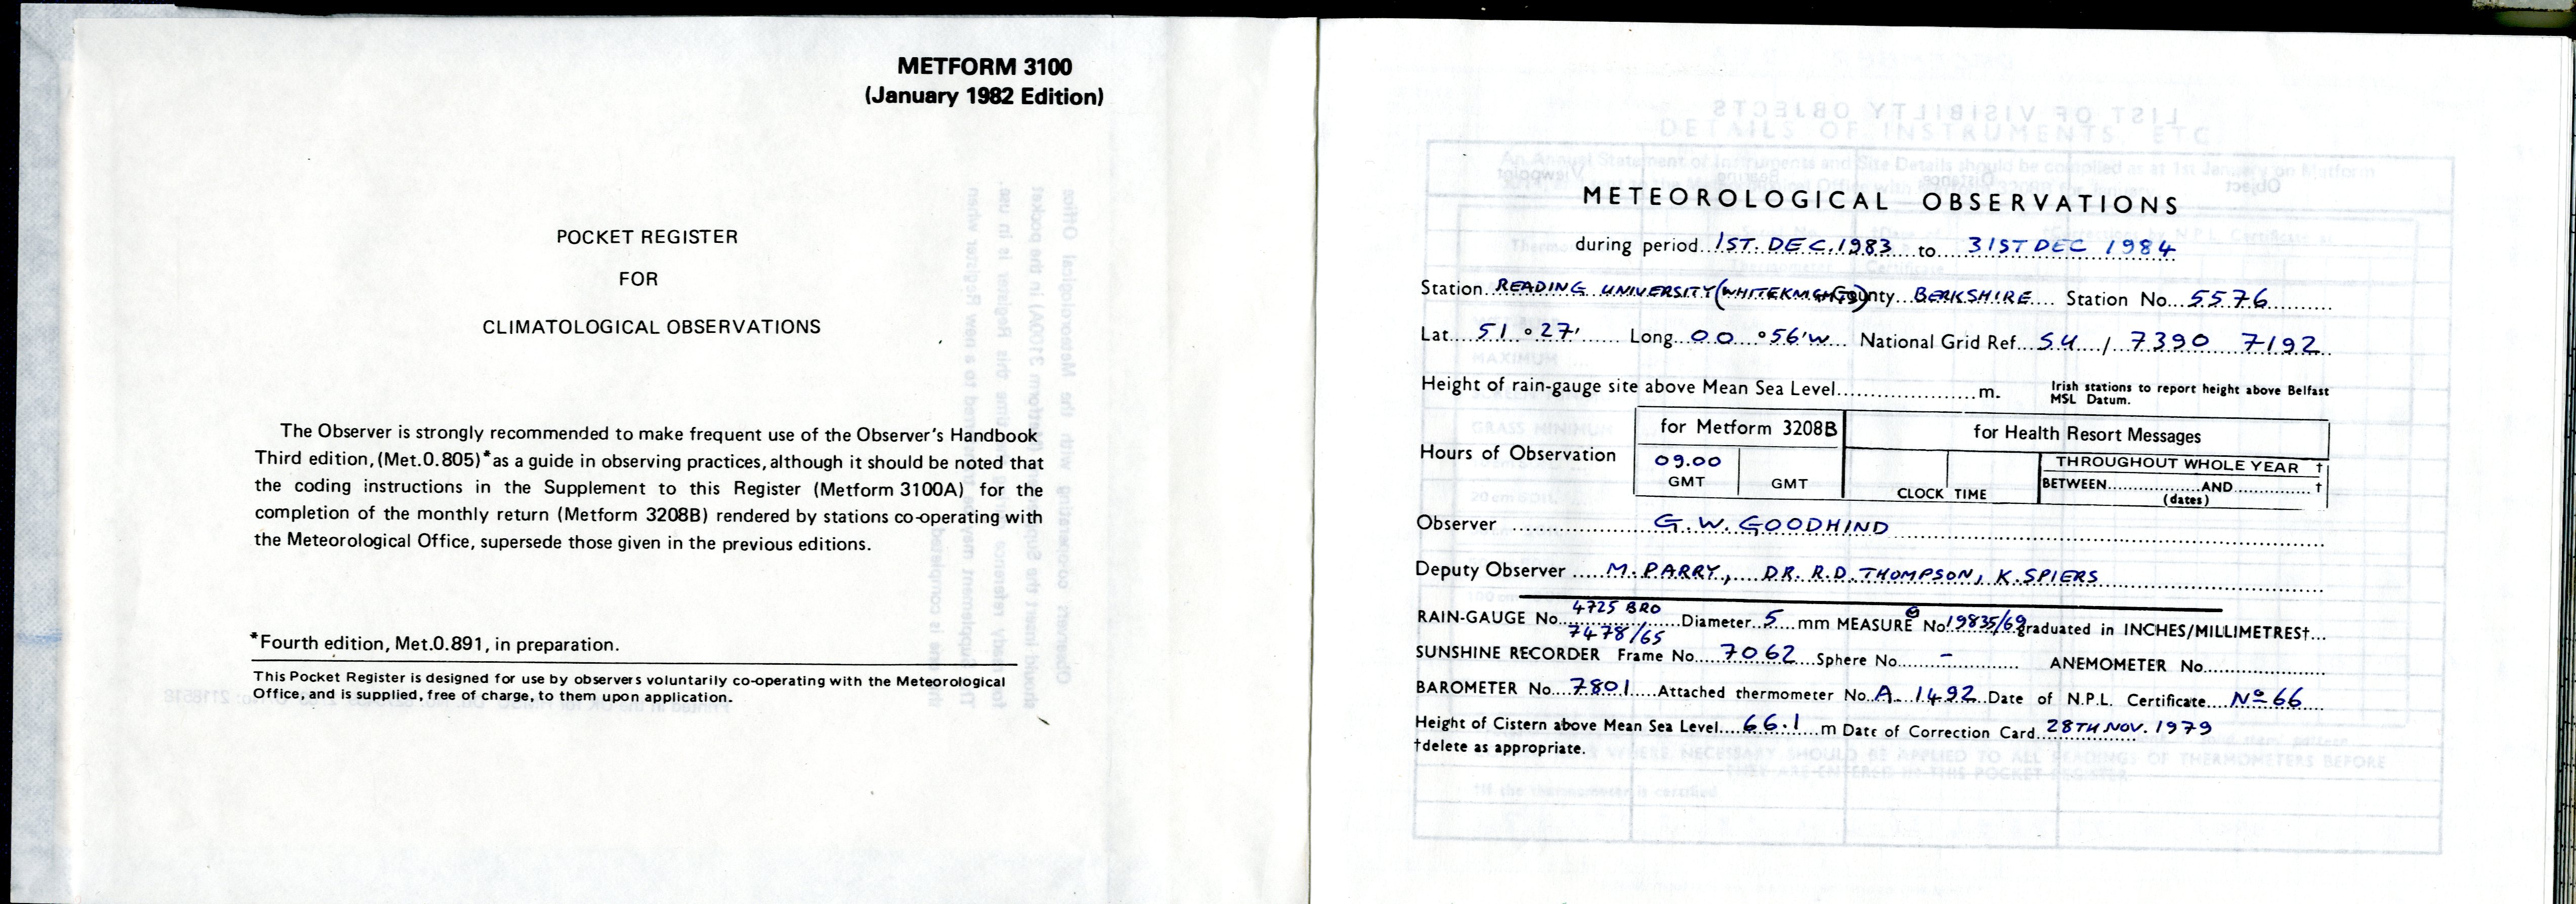 METFORM 3100
(January 1982 Edition)
POCKET REGISTER
FOR
CLIMATOLOGICAL OBSERVATIONS
The Observer is strongly recommended to make frequent use of the Observer's Handbook
Third edition, (Met.0.805)* as a guide in observing practices, although it should be noted that
the coding instructions in the Supplement to this Register (Metform 3100A) for the
completion of the monthly return (Metform 3208B) rendered by stations co-operating with
the Meteorological Office, supersede those given in the previous editions.
*Fourth edition, Met.0.891, in preparation.
This Pocket Register is designed for use by observers voluntarily co-operating with the Meteorological
Office, and is supplied, free of charge, to them upon application.
METEOROLOGICAL OBSERVATIONS
during period 1ST. DEC. 1983 to 31ST DEC 1984
Station READING UNIVERSITY (WHITEKNIGHTS) County BERKSHIRE Station No. 5576
Lat. 51 ° 27' Long. 00 ° 56'W National Grid Ref. SU / 7390 7192
Height of rain-gauge site above Mean Sea Level m. Irish stations to report height above Belfast
MSL Datum.
for Metform 3208B for Health Resort Messages
Hours of Observation 09.00 GMT GMT CLOCK TIME THROUGHOUT WHOLE YEAR †
BETWEEN AND †
(dates)
Observer G. W. GOODHIND
Deputy Observer M. PARRY, DR. R.D. THOMPSON, K. SPIERS
4725 BRO
RAIN-GAUGE No. 7478/65 Diameter 5 mm MEASURE No. 19835/69 graduated in INCHES/MILLIMETRES†
SUNSHINE RECORDER Frame No. 7062 Sphere No. – ANEMOMETER No.
BAROMETER No. 7801 Attached thermometer No. A 1492 Date of N.P.L. Certificate Nº 66
Height of Cistern above Mean Sea Level 66.1 m Date of Correction Card 28TH NOV. 1979
†delete as appropriate.